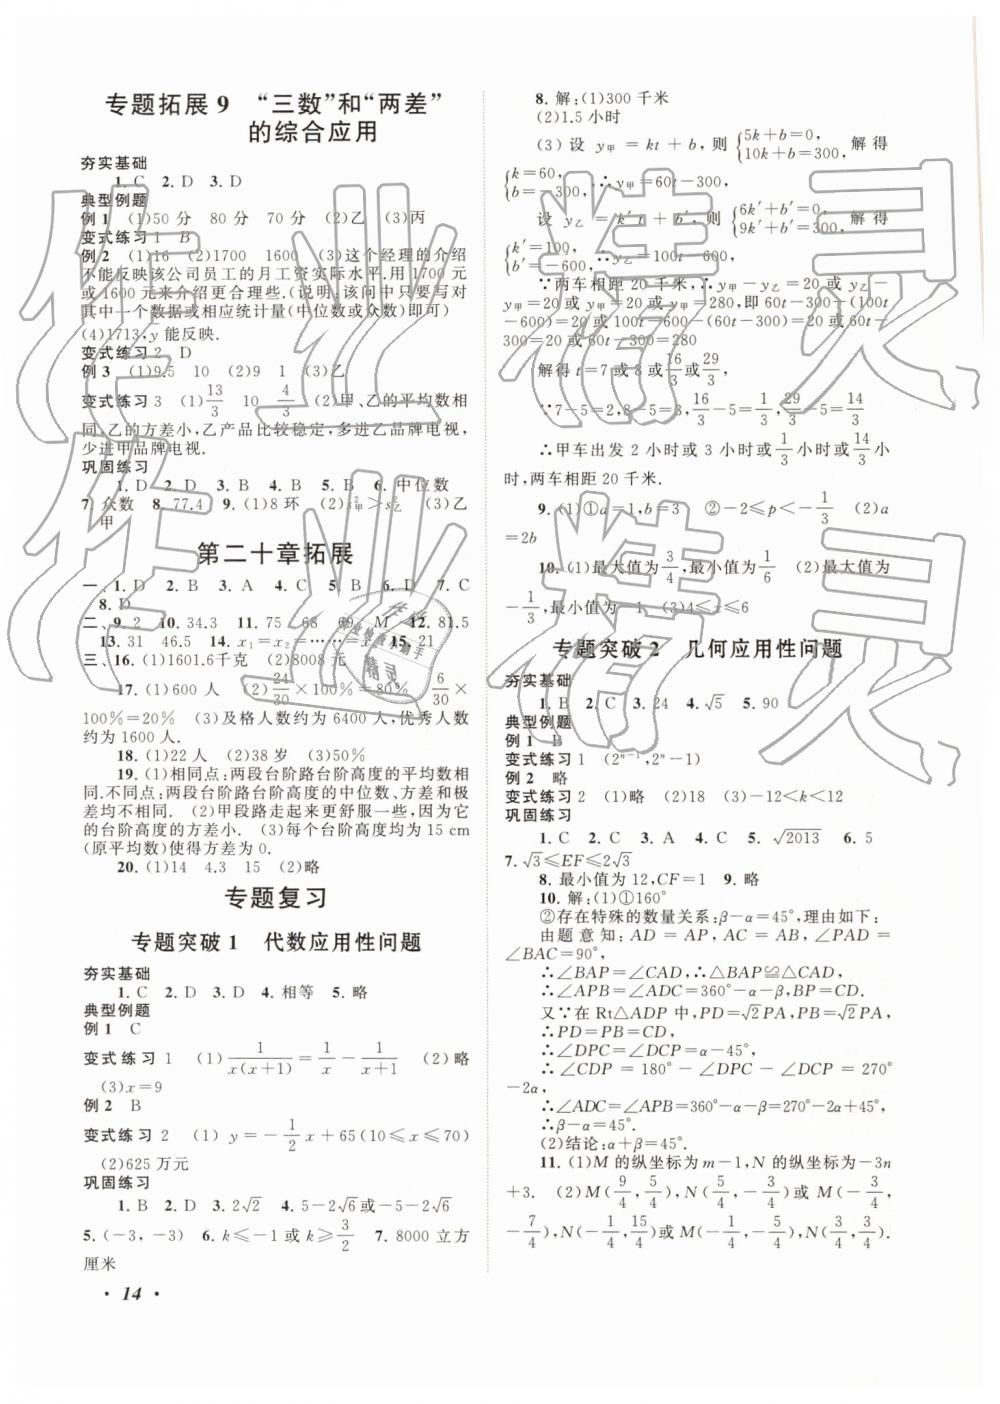 专题拓展 9 “三数”和“两差”
的综合应用
夯实基础
1. C 2. D 3. D
典型例题
例 1 (1)50 分 80 分 70 分 (2)乙 (3)丙
变式练习 1 B
例 2 (1)16 (2)1700 1600 (3)这个经理的介绍
不能反映该公司员工的月工资实际水平.用 1700 元
或 1600 元来介绍更合理些.(说明:该问中只要写对
其中一个数据或相应统计量(中位数或众数)即可)
(4)1713,y 能反映.
变式练习 2 D
例 3 (1)9.5 10 (2)9 1 (3)乙
变式练习 3 (1)13/3 10 4/3 (2)甲、乙的平均数相
同,乙的方差小,乙产品比较稳定,多进乙品牌电视,
少进甲品牌电视.
巩固练习
1. D 2. D 3. B 4. B 5. B 6. 中位数
7. 众数 8. 77.4 9. (1)8 环 (2)s²甲＞s²乙 (3)乙
甲
第二十章拓展
一、1. D 2. B 3. A 4. C 5. B 6. D 7. C
8. D
二、9. 2 10. 34.3 11. 75 68 69 M 12. 81.5
13. 31 46.5 14. x₁＝x₂＝……＝xₙ 15. 21
三、16. (1)1601.6千克 (2)8008 元
17. (1)600 人 (2)24/30×100%＝80% 6/30×
100%＝20% (3)及格人数约为 6400 人,优秀人数
约为 1600 人.
18. (1)22 人 (2)38 岁 (3)50%
19. (1)相同点:两段台阶路台阶高度的平均数相
同.不同点:两段台阶路台阶高度的中位数、方差和极
差均不相同. (2)甲段路走起来更舒服一些,因为它
的台阶高度的方差小. (3)每个台阶高度均为 15 cm
(原平均数)使得方差为 0.
20. (1)14 4.3 15 (2)略
专题复习
专题突破 1 代数应用性问题
夯实基础
1. C 2. D 3. D 4. 相等 5. 略
典型例题
例 1 C
变式练习 1 (1)1/(x(x+1))＝1/x－1/(x+1) (2)略
(3)x＝9
例 2 B
变式练习 2 (1) y＝－1/2 x＋65(10≤x≤70)
(2)625 万元
巩固练习
1. B 2. D 3. 2√2 4. 5－2√6或－5－2√6
5. (－3,－3) 6. k≤－1 或 k≥3/2 7. 8000 立方
厘米
· 14 ·
8. 解:(1)300 千米
(2)1.5 小时
(3) 设 y甲＝kt＋b,则{5k＋b＝0, 10k＋b＝300, 解得
{k＝60, b＝－300, ∴y甲＝60t－300,
设 y乙＝k′t＋b′,则{6k′＋b′＝0, 9k′＋b′＝300, 解得
{k′＝100, b′＝－600, ∴y乙＝100t－600,
∵两车相距 20 千米,∴y甲－y乙＝20 或 y乙－
y甲＝20 或 y甲＝20 或 y甲＝280,即 60t－300－(100t
－600)＝20 或 100t－600－(60t－300)＝20 或 60t－
300＝20 或 60t－300＝280
解得 t＝7 或 8 或16/3或29/3,
∵7－5＝2,8－5＝3,16/3－5＝1/3,29/3－5＝14/3
∴甲车出发 2 小时或 3 小时或1/3小时或14/3小
时,两车相距 20 千米.
9. (1)①a＝1,b＝3 ②－2≤p＜－1/3 (2)a
＝2b
10. (1)最大值为3/4,最小值为1/6 (2)最大值为
－1/3,最小值为－1 (3)4≤x≤6
专题突破 2 几何应用性问题
夯实基础
1. B 2. C 3. 24 4. √5 5. 90
典型例题
例 1 B
变式练习 1 (2ⁿ⁻¹,2ⁿ－1)
例 2 略
变式练习 2 (1)略 (2)18 (3)－12＜k＜12
巩固练习
1. C 2. C 3. A 4. C 5. √2013 6. 5
7. √3≤EF≤2√3
8. 最小值为 12,CF＝1 9. 略
10. 解:(1)①160°
②存在特殊的数量关系:β－α＝45°,理由如下:
由题意知:AD＝AP,AC＝AB,∠PAD＝
∠BAC＝90°,
∴∠BAP＝∠CAD,∴△BAP≌△CAD,
∴∠APB＝∠ADC＝360°－α－β,BP＝CD.
又∵在 Rt△ADP 中,PD＝√2PA,PB＝√2PA,
∴PD＝PB＝CD,
∴∠DPC＝∠DCP＝α－45°,
∴∠CDP＝180°－∠DPC－∠DCP＝270°
－2α,
∴∠ADC＝∠APB＝360°－α－β＝270°－2α
∴β－α＝45°.
(2)结论:α＋β＝45°.
11. (1)M 的纵坐标为 m－1,N 的纵坐标为－3n
＋3. (2)M(9/4,5/4),N(5/4,－3/4)或 M(－3/4,
－7/4),N(－1/4,15/4)或 M(－1/4,－5/4),N(3/4,3/4).